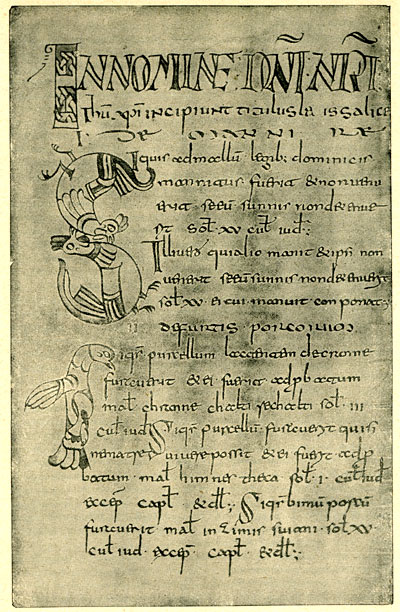 IN NOMINE DNI NRI
Ihu xpi incipiunt titulus legis salice
I DE MANNIRE
Siquis ad mallu legib; dominicis
mannitus fuerit & non uene
rit seu sunnis non detenue
rit sol xv cul iud:
Ille uero qui alio manit & ipsi non
uenerit seu sunnis non detenuerit
sol xv ei cui manuit conponat
II de furtis porcorum
Siqis purcellum lactantem de cranne
furauerit & ei fuerit adpbatum
mal chranne chalti rechalti sol III
cul iud Siqs purcellu furauerit qui
sine matre uiuere possit & ei fuerit adp
batum mal himnes theca sol I cul iud
excep capl & dil; Siqs bimu porcu
furauerit mal in zimis suiani sol xv
cul iud excep capl & dil;